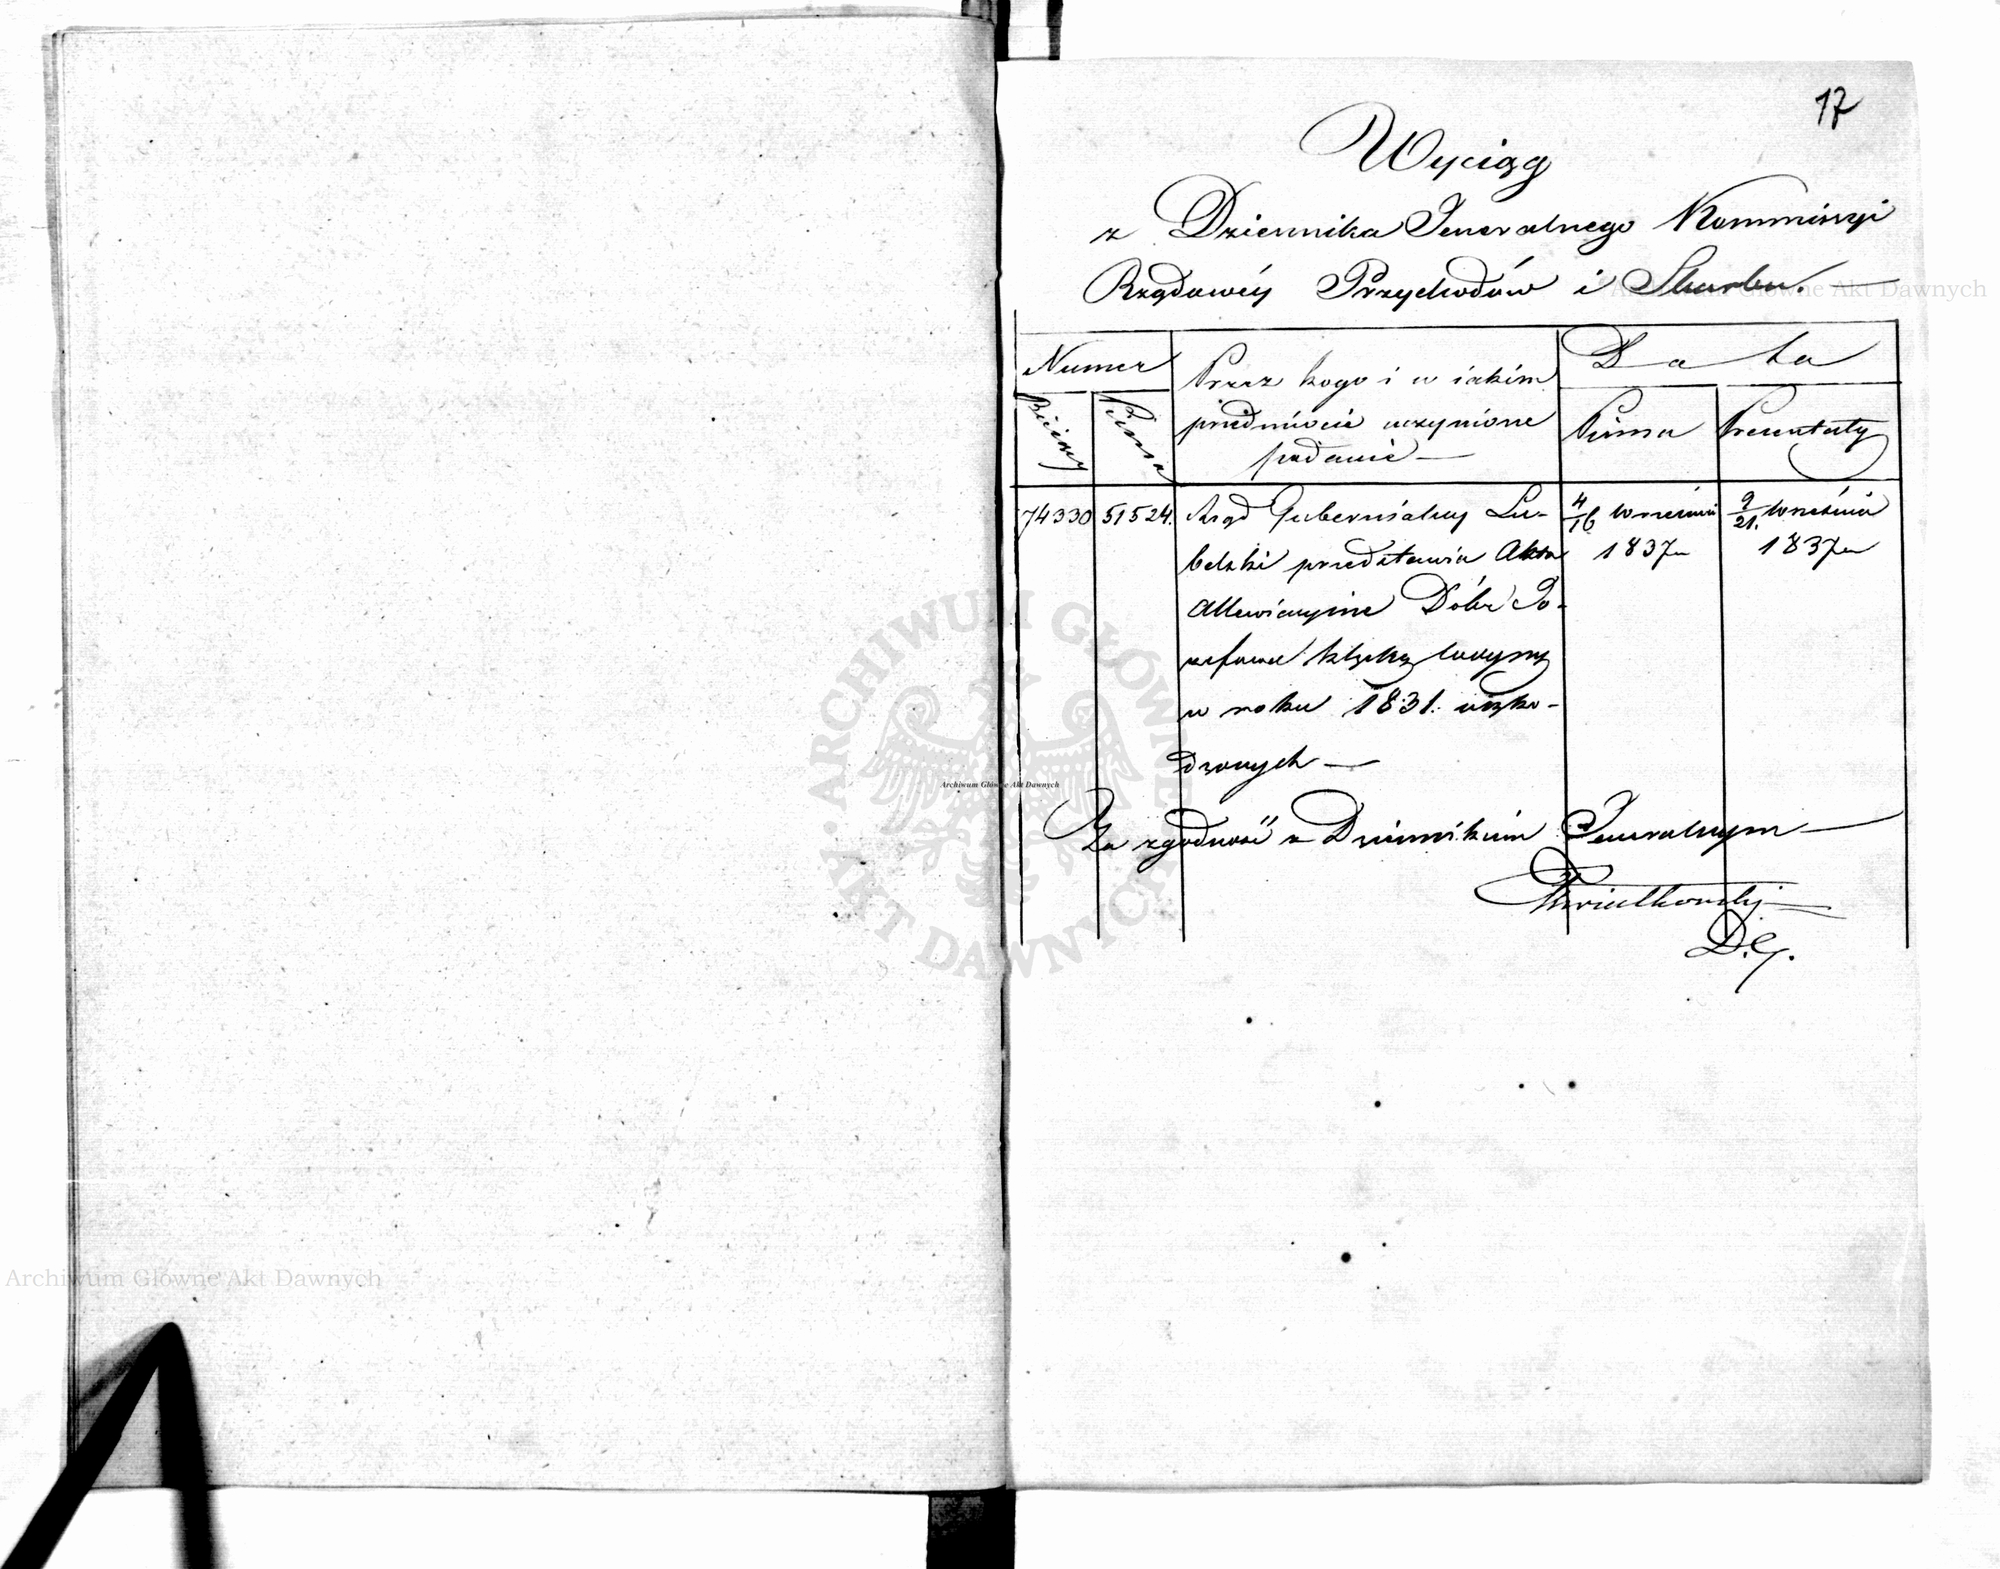 17
Wyciąg
z Dziennika Jeneralnego Kommissyi
Rządowéy Przychodów i Skarbu. —
Numer
Bieżący
Pisma
Przez kogo i w iakim
przedmiocie uczynione
podanie —
Data
Pisma
Prezentaty
74330
51524.
Rząd Gubernialny Lu-
belski przedstawia Akta
Allewiacyjne Dóbr Jo-
zefowa klęską woyny
w roku 1831. uszko-
dzonych —
4/16 Września
1837
9/21. Września
1837
Za zgodność z Dziennikiem Jeneralnym —
Kwiatkowski
D.G.
Archiwum Główne Akt Dawnych
Archiwum Główne Akt Dawnych
Archiwum Główne Akt Dawnych
ARCHIWUM GŁÓWNE AKT DAWNYCH